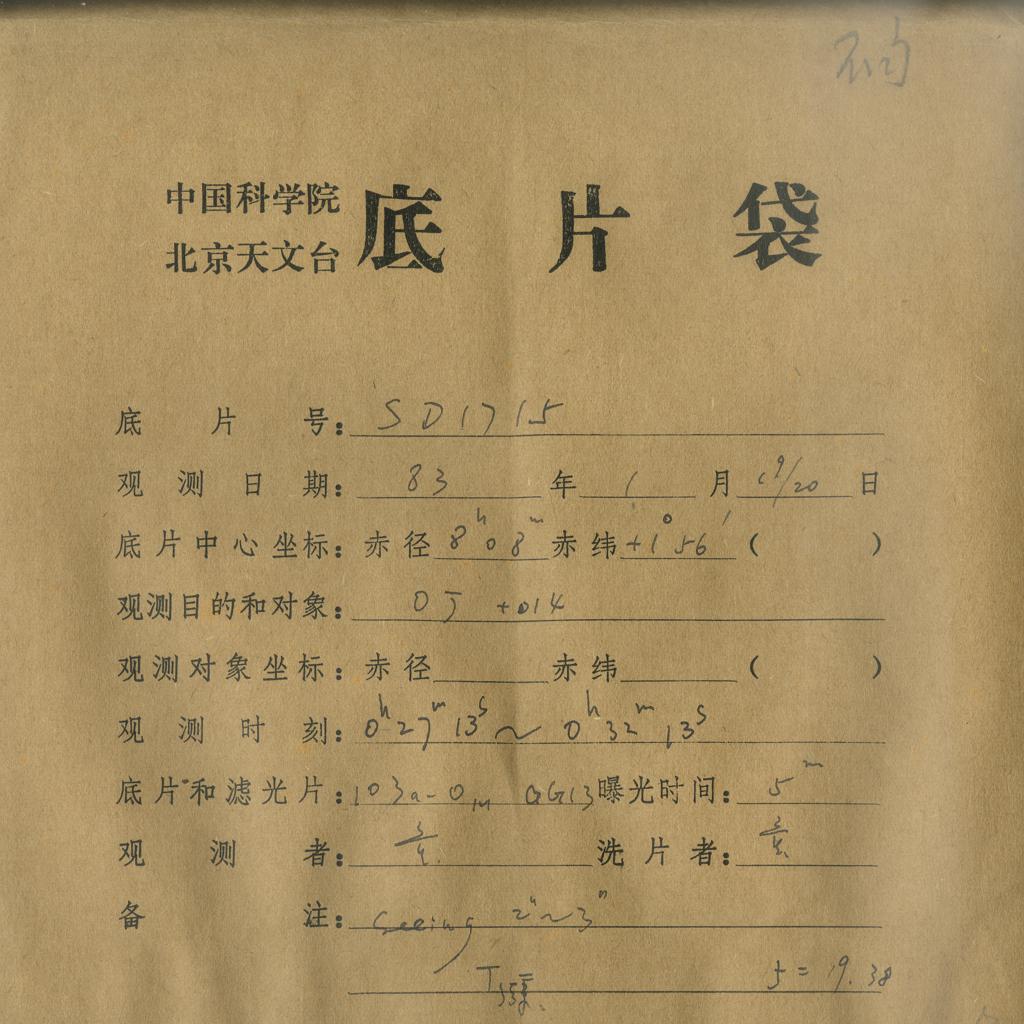 中国科学院
北京天文台
底片袋
底片号： SD1715
观测日期： 83 年 1 月 19/20 日
底片中心坐标：赤径 8h 08m 赤纬 +1° 56′ （ ）
观测目的和对象： OJ +014
观测对象坐标：赤径 赤纬 （ ）
观测时刻： 0h 27m 13s ~ 0h 32m 13s
底片和滤光片： 103a-O GG13 曝光时间： 5m
观测者： 洗片者：
备注： Seeing 2"~3"
= 19.38